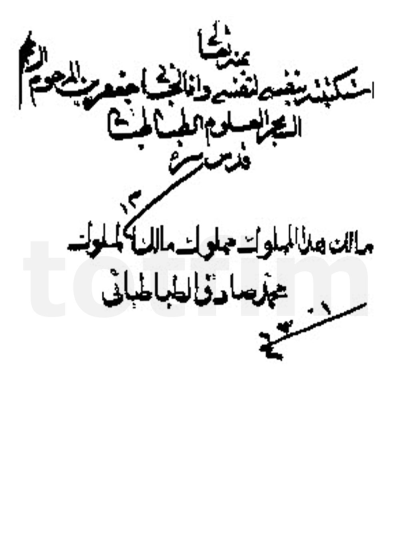 بمنه تعالى
استكتبته بنفسي لنفسي وانا الجاني جعفر بن المرحوم
البحر العلوم الطباطبائي
قدس سره
١٣
مالك هذا المملوك مملوك مالك الملوك
محمد صادق الطباطبائي
totfim